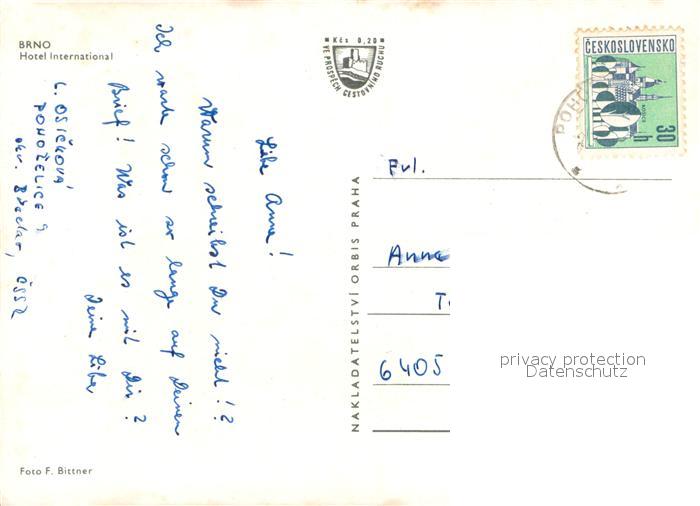 BRNO
Hotel International
Kčs 0,20
VE PROSPĚCH CESTOVNÍHO RUCHU
ČESKOSLOVENSKO
30 h
POHO
Liebe Anna!
Warum schreibst Du nicht!?
Ich warte schon so lange auf Deinen
Brief! Was ist es mit Dir?
Deine Liba
L. OSIČKOVÁ
POHOŘELICE 9
okr. Břeclav, ČSSR
NAKLADATELSTVÍ ORBIS PRAHA
Frl.
Anna
T
6405
privacy protection
Datenschutz
Foto F. Bittner